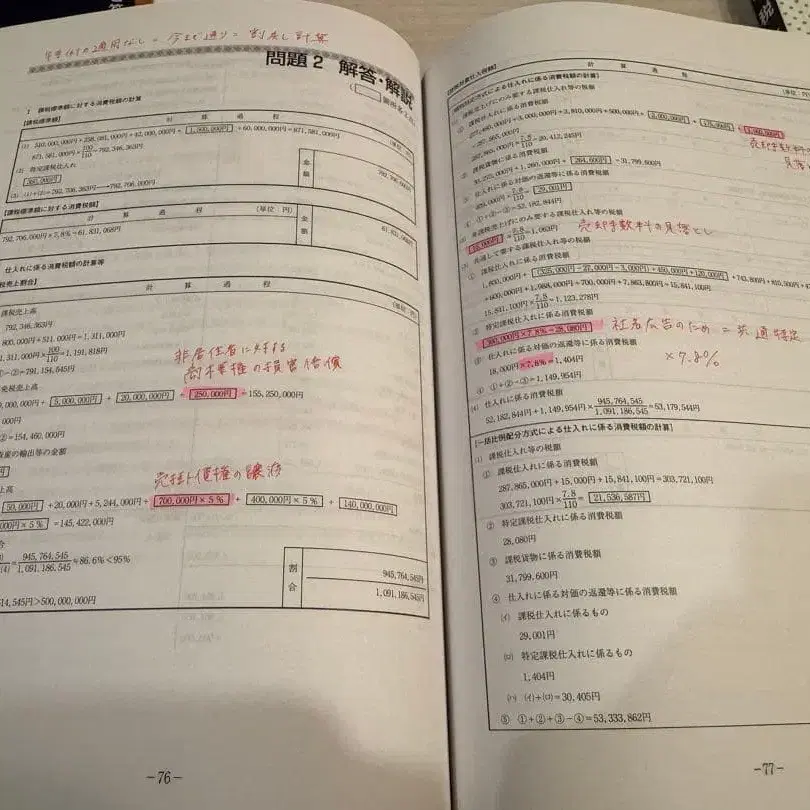 特例の適用なし = 今まで通り = 割戻し計算
問題2 解答・解説
1 課税標準額に対する消費税額の計算
【課税標準額】
計 算 過 程 (単位 円)
1,000,000円 +60,000,000円=871,581,000円
871,581,000円×100/110=792,346,363円
(2) 特定課税仕入れ
360,000円
(3) (1)+(2)=792,706,363円→792,706,000円
金額
792,706,000円
【課税標準額に対する消費税額】
計 算 過 程 (単位 円)
792,706,000円×7.8%=61,831,068円
金額
61,831,068円
仕入れに係る消費税額の計算等
税売上割合】
計 算 過 程 (単位 円)
課税売上高
792,346,363円
800,000円+511,000円=1,311,000円
1,311,000円×100/110=1,191,818円
①-②=791,154,545円
免税売上高
非居住者に対する
商標権の損害賠償
5,000,000円 + 20,000,000円 + 250,000円 =155,250,000円
②=154,460,000円
資産の輸出等の金額
上高
売掛債権の譲渡
50,000円 +20,000円+5,244,000円+ 700,000円×5% + 400,000円×5% + 140,000,000円
000円×5% =145,422,000円
合
945,764,545/1,091,186,545=86.6%<95%
514,545円>500,000,000円
割合
945,764,545円
1,091,186,545円
-76-
【控除対象仕入税額】
計 算 過 程 (単位 円)
課税売上げにのみ要する課税仕入れ等の税額
課税仕入れに係る消費税額
1,000,000円
=287,865,000円
287,865,000円×7.8/110=20,412,245円
売却手数料の
見落とし
課税貨物に係る消費税額
30,275,000円+1,260,000円+ 264,600円 =31,799,600円
仕入れに係る対価の返還等に係る消費税額
409,000円×7.8/110= 29,001円
④ ①+②-③=52,182,844円
15,000円 ×7.8/110=1,063円
売却手数料の見落とし
(3) 共通して要する課税仕入れ等の税額
① 課税仕入れに係る消費税額
1,800,000円+ (325,000円-27,000円-3,000円)+450,000円+120,000円 +743,800円+815,500円
+600,000円+1,988,000円+700,000円+7,863,800円=15,841,100円
15,841,100円×7.8/110=1,123,278円
② 特定課税仕入れに係る消費税額
360,000円×7.8%=28,080円
社名広告のため = 共通特定
×7.8%
③ 仕入れに係る対価の返還等に係る消費税額
18,000円×7.8%=1,404円
④ ①+②-③=1,149,954円
(4) 仕入れに係る消費税額
52,182,844円+1,149,954円×945,764,545/1,091,186,545=53,179,544円
【一括比例配分方式による仕入れに係る消費税額の計算】
(1) 課税仕入れ等の税額
① 課税仕入れに係る消費税額
287,865,000円+15,000円+15,841,100円=303,721,100円
303,721,100円×7.8/110= 21,536,587円
② 特定課税仕入れに係る消費税額
28,080円
③ 課税貨物に係る消費税額
31,799,600円
④ 仕入れに係る対価の返還等に係る消費税額
(イ) 課税仕入れに係るもの
29,001円
(ロ) 特定課税仕入れに係るもの
1,404円
(ハ) (イ)+(ロ)=30,405円
⑤ ①+②+③-④=53,333,862円
-77-